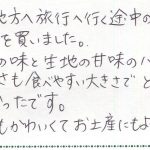 地方へ旅行へ行く途中の
を買いました。
の味と生地の甘味の
さも食べやすい大きさで と
ったです。
もかわいくてお土産にもよ